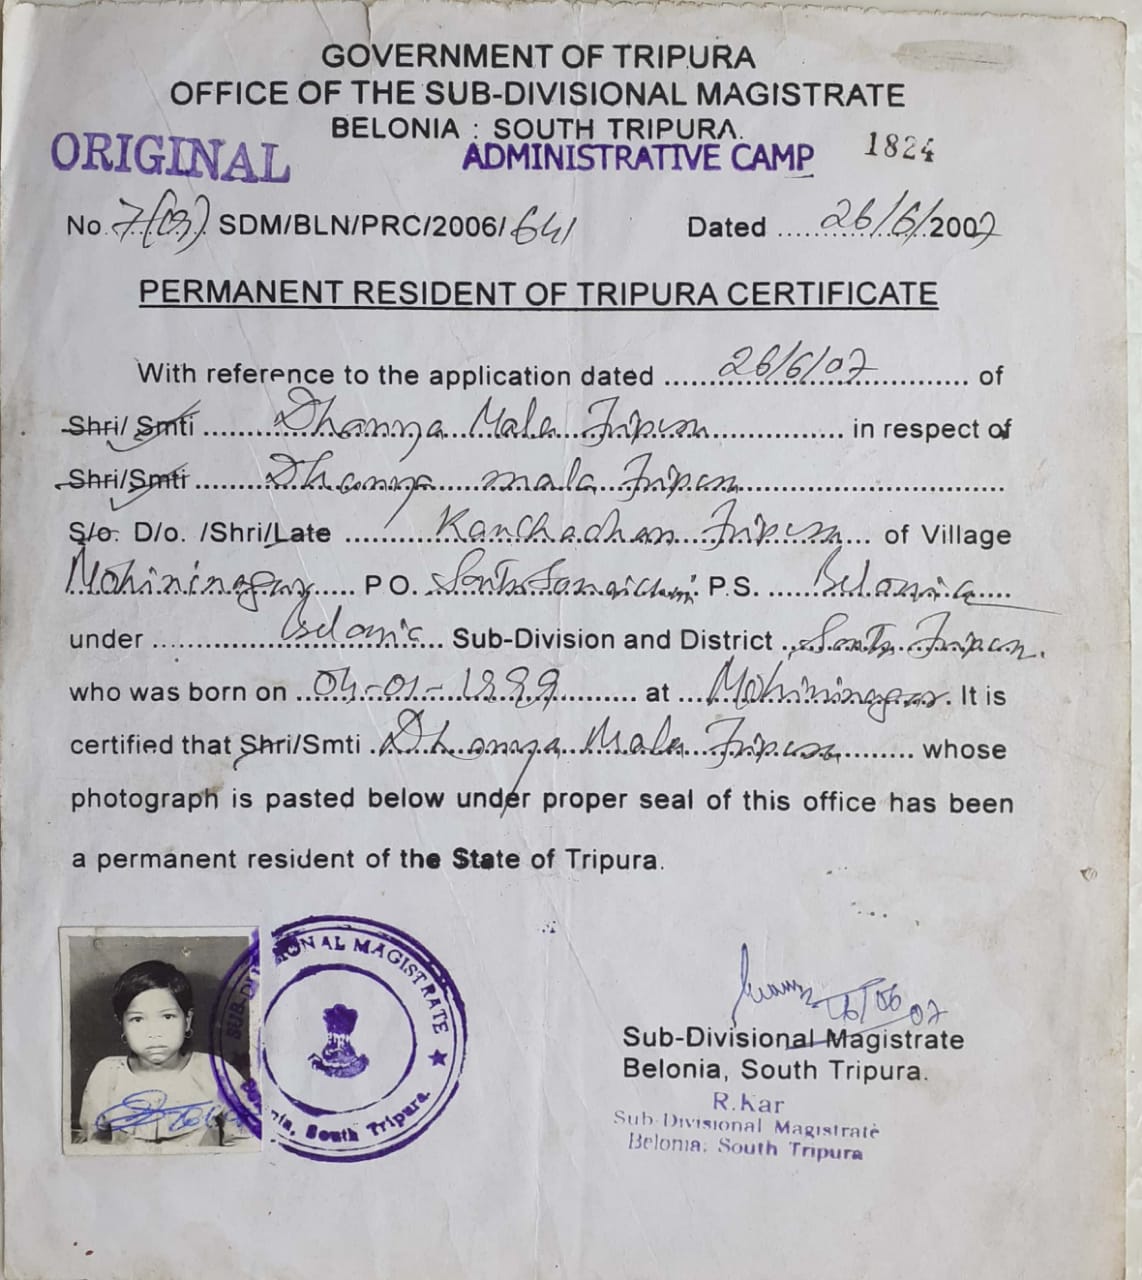 GOVERNMENT OF TRIPURA
OFFICE OF THE SUB-DIVISIONAL MAGISTRATE
BELONIA : SOUTH TRIPURA.
ORIGINAL ADMINISTRATIVE CAMP 1824
No. 7(03) SDM/BLN/PRC/2006/641 Dated ......26/6/2007
PERMANENT RESIDENT OF TRIPURA CERTIFICATE
With reference to the application dated ......26/6/07...... of
Shri/ Smti ......Dhanya Mala Tripura...... in respect of
Shri/Smti ......Dhanya mala Tripura......
S/o. D/o. /Shri/Late ......Kanchadhan Tripura... of Village
Mohininagar..... P O. South Sonaichari P.S. ......Belonia.....
under ......Belonia... Sub-Division and District ..South Tripura.
who was born on ...04-01-1999...... at ...Mohininagar. It is
certified that Shri/Smti .Dhanya Mala Tripura...... whose
photograph is pasted below under proper seal of this office has been
a permanent resident of the State of Tripura.
SUB-DIVISIONAL MAGISTRATE
Belonia, South Tripura.
26/06/07
Sub-Divisional Magistrate
Belonia, South Tripura.
R.Kar
Sub-Divisional Magistrate
Belonia, South Tripura